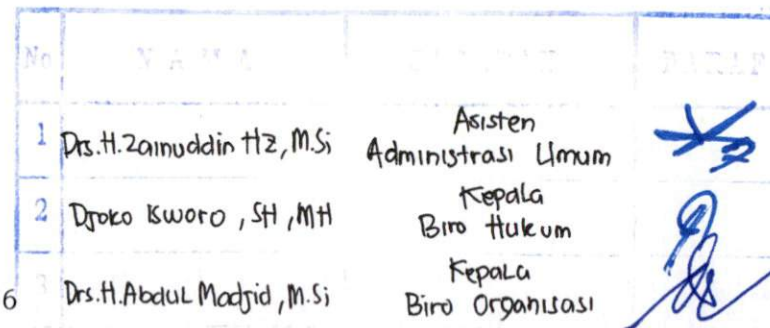 No NAMA JABATAN PARAF
1 Drs.H.Zainuddin HZ, M.Si Asisten Administrasi Umum
2 Djoko Isworo, SH, MH Kepala Biro Hukum
3 Drs.H.Abdul Madjid, M.Si Kepala Biro Organisasi
6